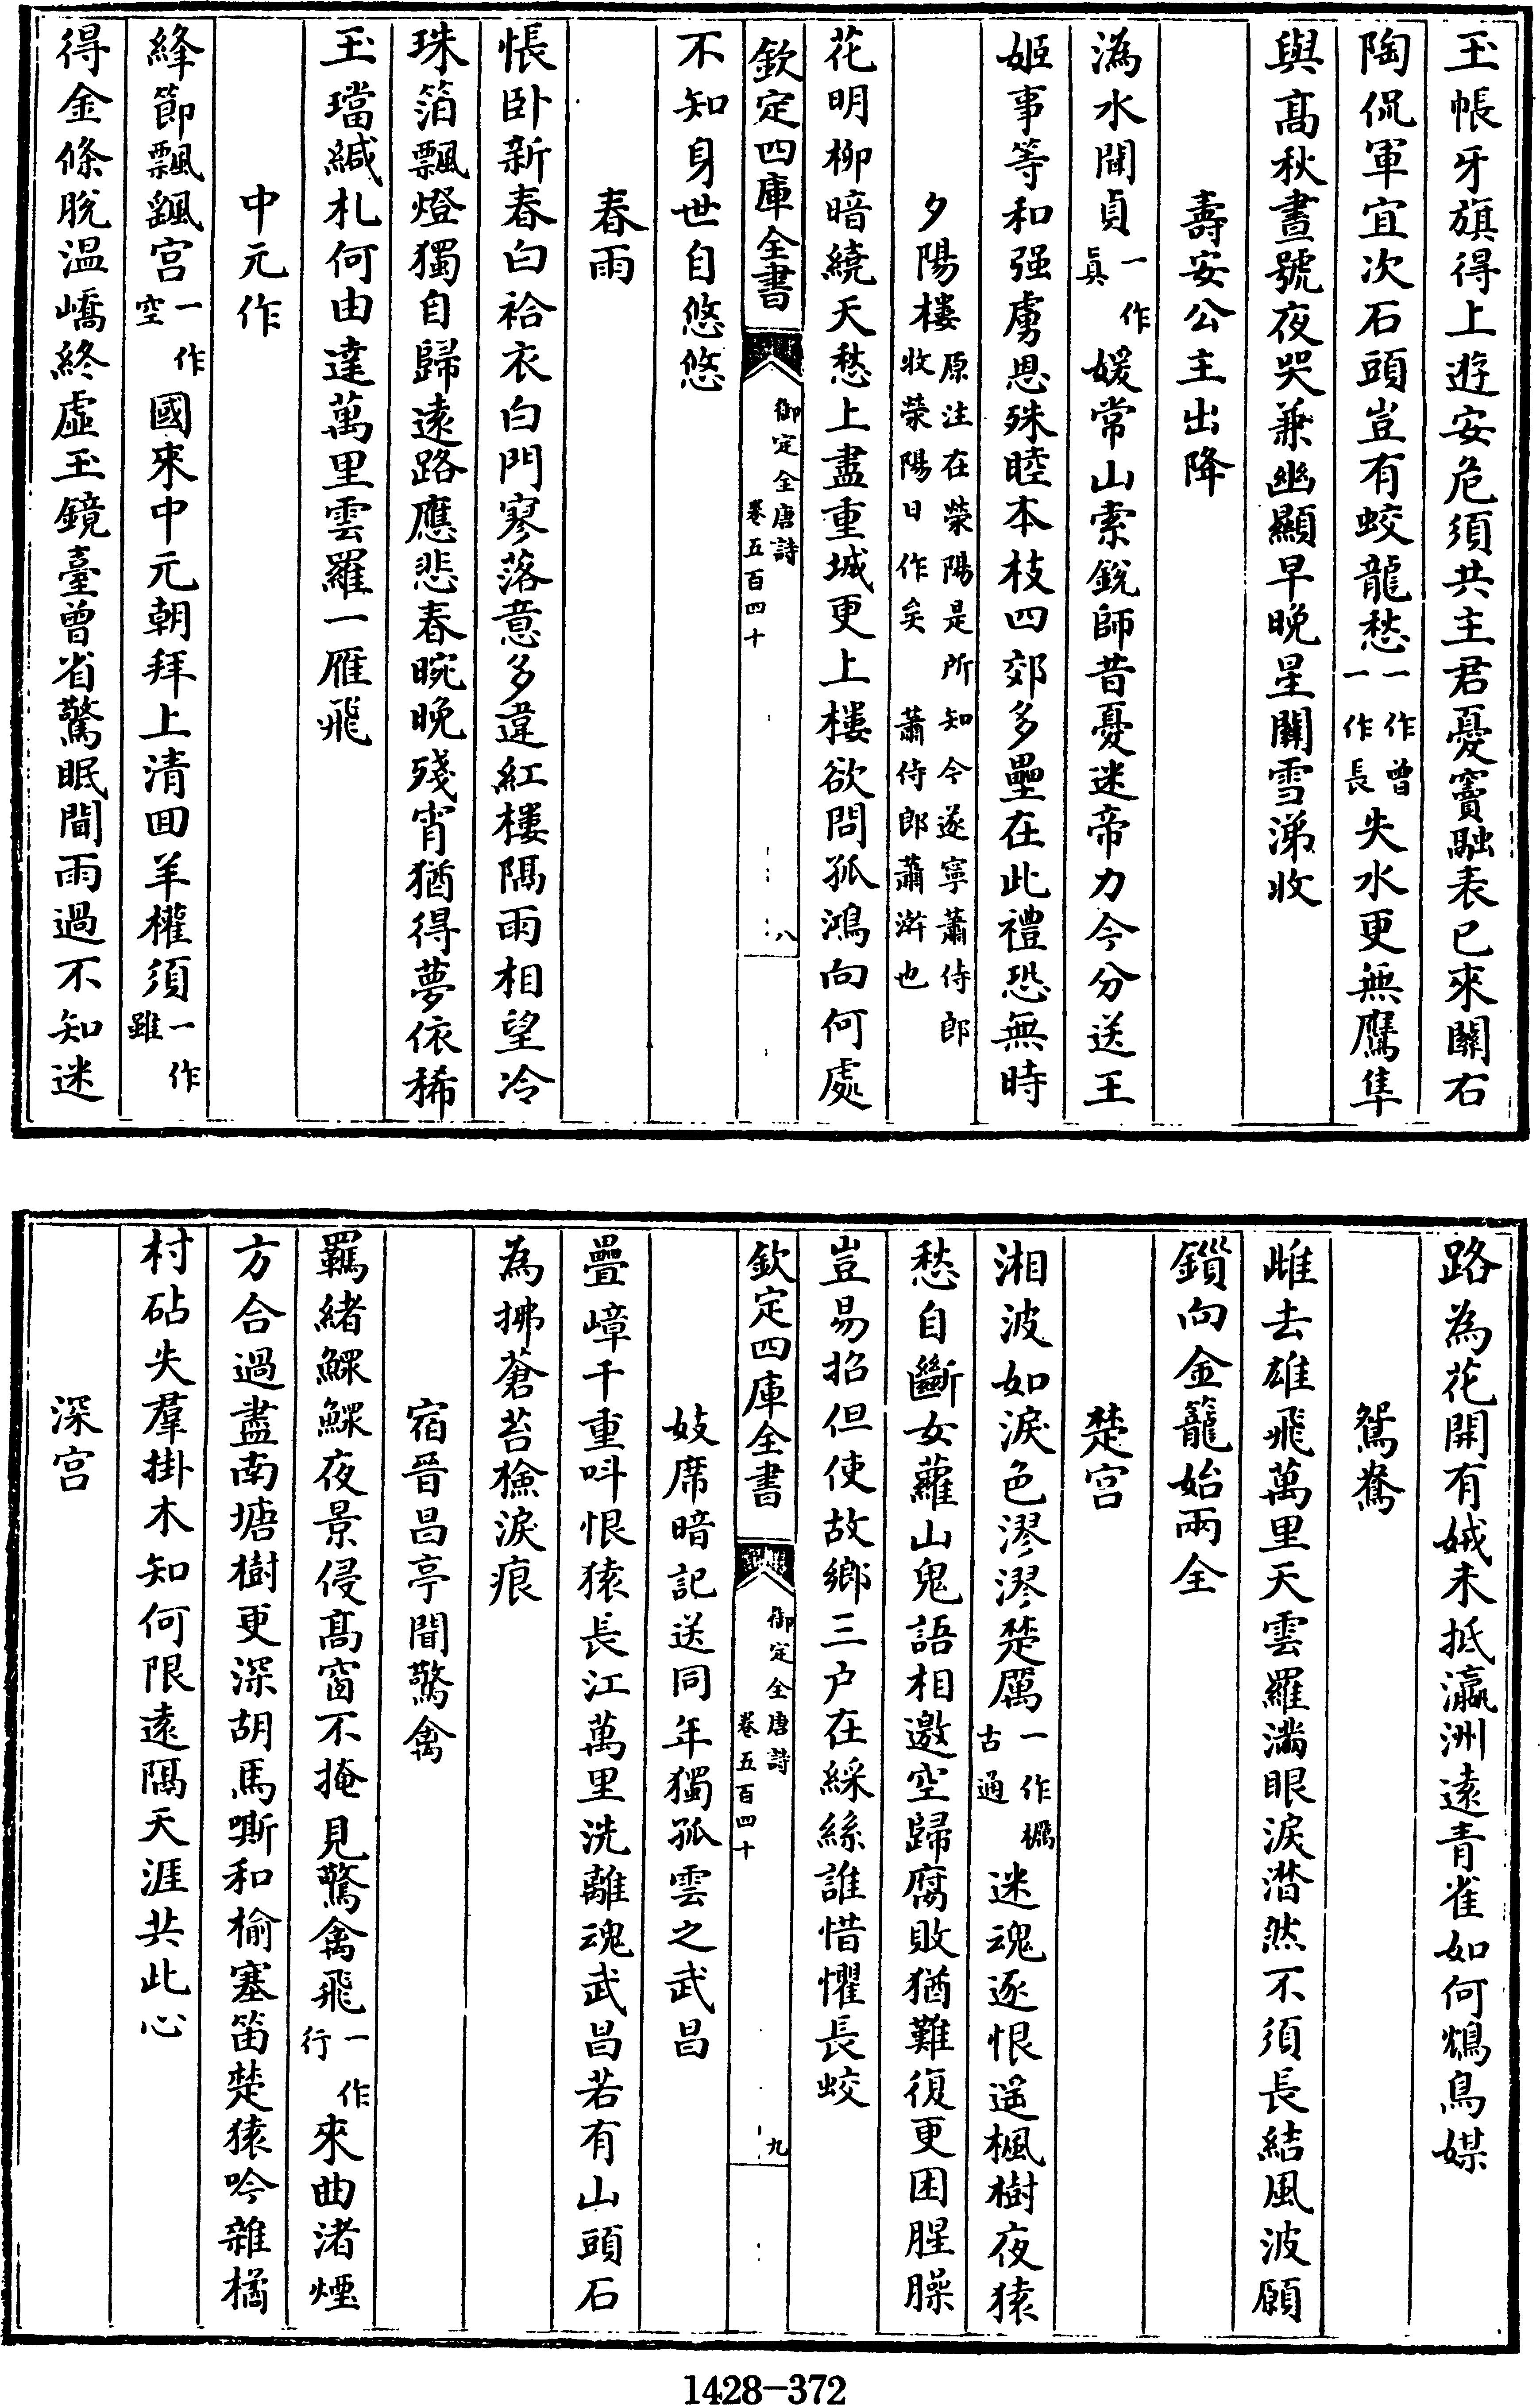 玉帳牙旗得上遊安危須共主君憂竇融表已來關右
陶侃軍宜次石頭豈有蛟龍愁一作曾一作長失水更無鷹隼
與髙秋晝號夜哭兼幽顯早晚星關雪涕收
壽安公主出降
溈水聞貞一作眞媛常山索鋭師昔憂迷帝力今分送王
姬事等和强虜恩殊睦本枝四郊多壘在此禮恐無時
夕陽樓原注在滎陽是所知今遂寧蕭侍郎牧滎陽日作矣蕭侍郎蕭澣也
花明柳暗繞天愁上盡重城更上樓欲問孤鴻向何處
欽定四庫全書
御定全唐詩
卷五百四十
八
不知身世自悠悠
春雨
悵卧新春白袷衣白門寥落意多違紅樓隔雨相望冷
珠箔飄燈獨自歸遠路應悲春晼晚殘宵猶得夢依稀
玉璫緘札何由達萬里雲羅一雁飛
中元作
絳節飄颻宫一作空國來中元朝拜上清囬羊權須一作雖
得金條脱温嶠終虚玉鏡臺曾省驚眠聞雨過不知迷
路為花開有娀未抵瀛洲遠青雀如何鴆鳥媒
鴛鴦
雌去雄飛萬里天雲羅滿眼淚潸然不須長結風波願
鎻向金籠始兩全
楚宫
湘波如淚色漻漻楚厲一作櫔古通迷魂逐恨遥楓樹夜猿
愁自斷女蘿山鬼語相邀空歸腐敗猶難復更困腥臊
豈易招但使故鄉三户在綵絲誰惜懼長蛟
欽定四庫全書
御定全唐詩
卷五百四十
九
妓席暗記送同年獨孤雲之武昌
疊嶂千重呌恨猿長江萬里洗離魂武昌若有山頭石
為拂蒼苔檢淚痕
宿晉昌亭聞驚禽
羈緒鰥鰥夜景侵髙窗不掩見驚禽飛一作行來曲渚煙
方合過盡南塘樹更深胡馬嘶和榆塞笛楚猿吟雜橘
村砧失羣掛木知何限遠隔天涯共此心
深宫
1428-372